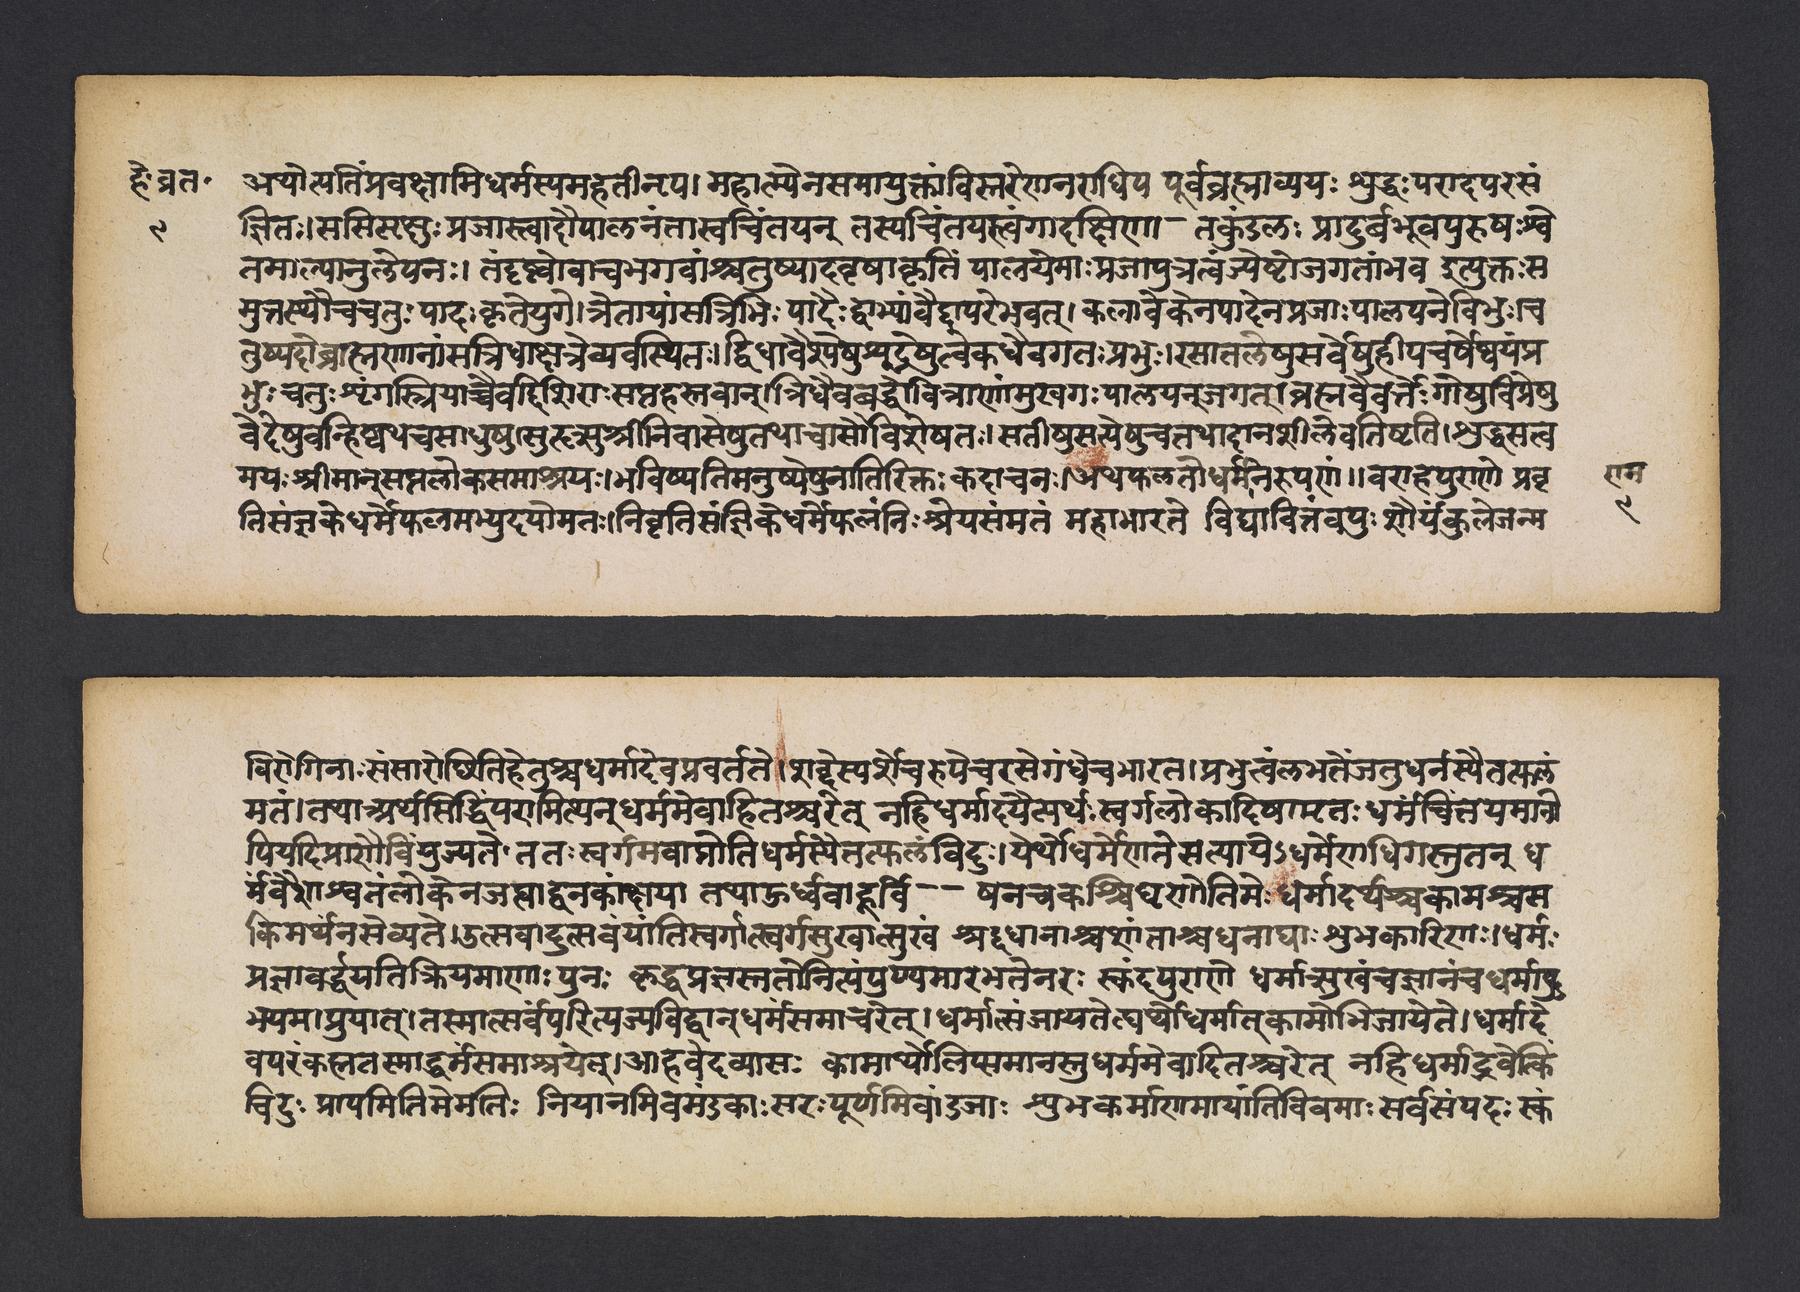 हे॰ व्रत॰
९
अथोत्पतिंप्रवक्षामिधर्मस्यमहतीनृप। महात्म्येनसमायुक्तांविस्तरेणनराधिप पूर्वब्रह्माव्ययः शुद्धःपरादपरसं
ज्ञितः।ससिसृक्षुः प्रजास्त्वादौपालनंतास्वचिंतयन् तस्यचिंतयस्त्वंगादक्षिणा– तकुंडलः प्रादुर्बभूवपुरुषःश्वे
तमाल्यानुलेपनः। तंदृष्ट्वोवाचभगवांश्चतुष्पादवृषाकृतिं पालयेमाःप्रजापुत्रत्वंज्येष्टोजगतांभव इत्युक्तःस
मुत्तस्थौचचतुःपादःकृतेयुगे।त्रेतायांसत्रिभिः पादैःद्वाभ्यांवैद्वापरेभवत्। कलावेकेनपादेनप्रजाःपालयनेविभुः।च
तुष्पदोब्राह्मणानांसत्रिधाक्षत्रेव्यवस्थितः।द्विधावैश्येषुशूद्रेषुत्वेकधैवगतःप्रभुः।रसातलेषुसर्वेषुद्वीपवर्षेष्वयंप्र
भुः चतुःशृंगस्त्रियाच्चैवद्विशिराःसप्तहस्तवान्।त्रिधैवबद्धोविप्राणांमुखगःपालयन्जगत्।ब्रह्मवैवर्त्तेगोषुविप्रेषु
वेदेषुवन्हिष्वथचसाधुषु।सुहृत्सुश्रीनिवासेषुतथाचासौविशेषतः।सतीषुसत्येषुन्वतथादानशीलेवतिष्टति।शुद्धसत्व
मयःश्रीमान्सप्तलोकसमाश्रयः।भविष्यतिमनुष्येषुनातिरिक्तःकदाचनः।अथफलतोधर्मनिरुपणं॥वराहेपुराणे प्रवृ
तिसंज्ञकेधर्मेफलमभ्युदयोमतः।निवृतिसंज्ञिकेधर्मेफलंनिःश्रेयसंमतं महाभारते विद्यावित्तंवपुःशौर्यंकुलेजन्म
राम
९
विरोगिनाःसंसारोछितिहेतुश्चधर्मादेवप्रवर्तते।शब्देस्पर्शेचरुपेचरसेगंधेचभारत।प्रभुत्वंलभतेंजतुधर्नस्यैतत्फलं
मतं।तथाअर्थसिद्धिंपरामित्यन्धर्ममेवाहितश्चरेत् नहिधर्मादयैत्यर्थःस्वर्गलोकादिषामृतःधर्मंचिंतयमानो
पियदिप्राणैविंयुज्यते ततःस्वर्गमवाप्नोतिधर्मस्येतत्फलंविदुः।येर्थाधर्मेणतेसत्यायेऽधर्मेणधिगस्तुतन् ध
र्मवैशाश्वतंलोकेनजह्याद्वेनकांक्षया तथाऊर्ध्वबाहूर्वि–– षनचकश्चिघृणोतिमे धर्मादर्थश्चकामश्चस
किमर्थंनसेव्यते।उत्सवादुत्सवंयांतिस्वर्गात्स्वर्गसुखात्सुखं श्रद्दधानाश्चशांताश्चधनाघाःशुभकारिणः।धर्मः
प्रज्ञावर्द्धयतिक्रियमाणाःपुनः वृद्धप्रज्ञस्ततोनित्यंपुण्यमारभतेनरः स्कंदपुराणे धर्मात्सुखंचज्ञानंचधर्मादु
भयमाप्नुयात्।तस्मात्सर्वंपरित्यज्यविद्वान्धर्मंसमाचरेत्।धर्मात्संजायतेत्घर्थोधर्मात्कामोभिजायते।धर्मादे
वपरंकस्तस्माद्धर्मंसमाश्रयेत्।आहवेदव्यासः कामार्थौलिप्समानस्तुधर्ममेवादितश्चरेत् नहिधर्माद्भवेत्किं
चिदुः प्रापमितिमेमतिः नियानमिवमंडकाःसरःपूर्णमिवांडजाः शुभकर्माणमायांतिविवमाःसर्वसंपदःस्कं